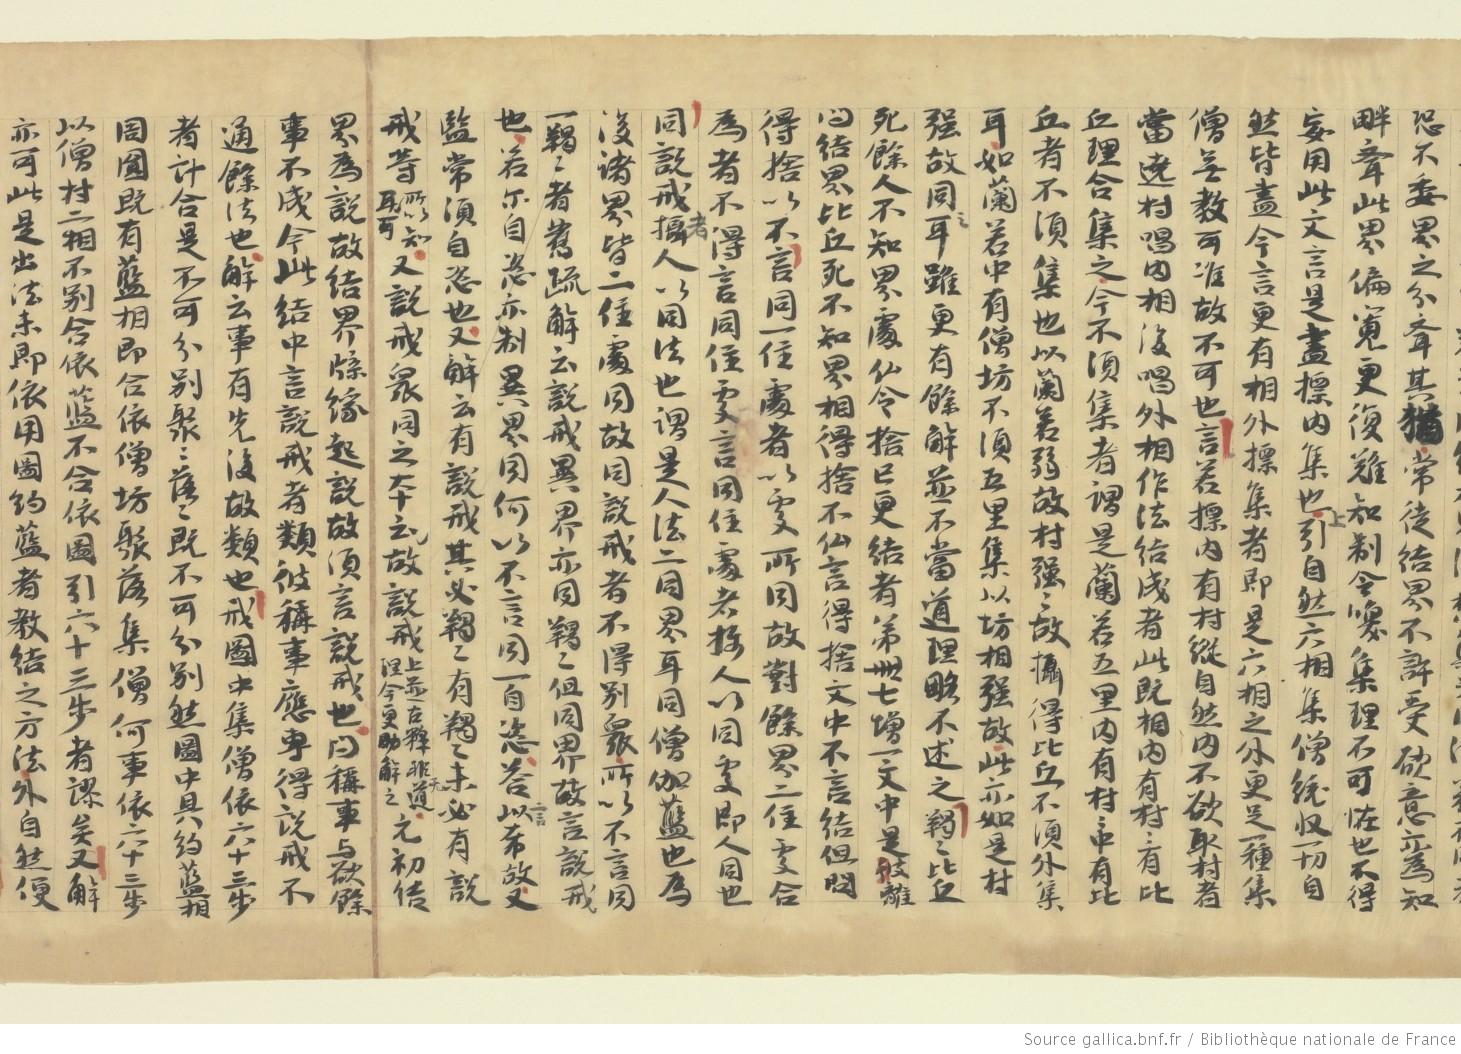 恐不委界之分齊其猶常徒結界不許受欲意亦為知
畔齊此界偏寬更復難知制令喚集理不可恠也不得
妄用此文言是盡標內集也引自然六相集僧統収一切自
然皆盡今言更有相外標集者即是六相之外更是一種集
僧無教可准故不可也言若標內有村縱自然內不欲取村者
當遶村唱內相後唱外相作法結成者此既相內有村村有比
丘理合集之今不須集者謂是蘭若五里內有村中有比
丘者不須集也以蘭若弱故村強強故攝得比丘不須外集
耳如蘭若中有僧坊不須五里集以坊相強故此亦如是村
強故同之耳雖更有餘解並不當道理略不述之羯羯比丘
死餘人不知界處仏令捨已更結者第卌七增一文中是離
曰結界比丘死不知界相得捨不仏言得捨文中不言結但問
得捨以不言同一住處者以受所同故對餘界二住受合
為者不得言同住受言同住處者按人以同受即人同也
同說戒者攝人以同法也謂是人法二同界耳同僧伽藍也為
沒諸界皆二住處同故同說戒者不得別眾所以不言同
一羯羯者舊疏解云說戒異界亦同羯羯但同界故言說戒
也若尒自恣亦制異界同何以不言同一自恣答以希故言又
監常須自恣也又解云有說戒其必羯羯有羯羯未必有說
戒等所以知耳可又說戒眾同之大十故說戒上並古釋非道理今更助解之元初結
界為說故結界牒緣起說故須言說戒也問稱事与欲餘
事不成今此結中言說戒者類彼稱事應專得說戒不
通餘法也解云事有先後故類也戒圖中集僧依六十三步
者計合是不可分別聚落聚落既不可分別然圖中具約藍相
同圖既有藍相即合依僧坊聚落集僧何事依六十三步
以僧村二相不別合依藍不合依圖引六十三步者謬矣又解
亦可此是出法未即依用圖約藍者教結之方法外自然便
Source gallica.bnf.fr / Bibliothèque nationale de France